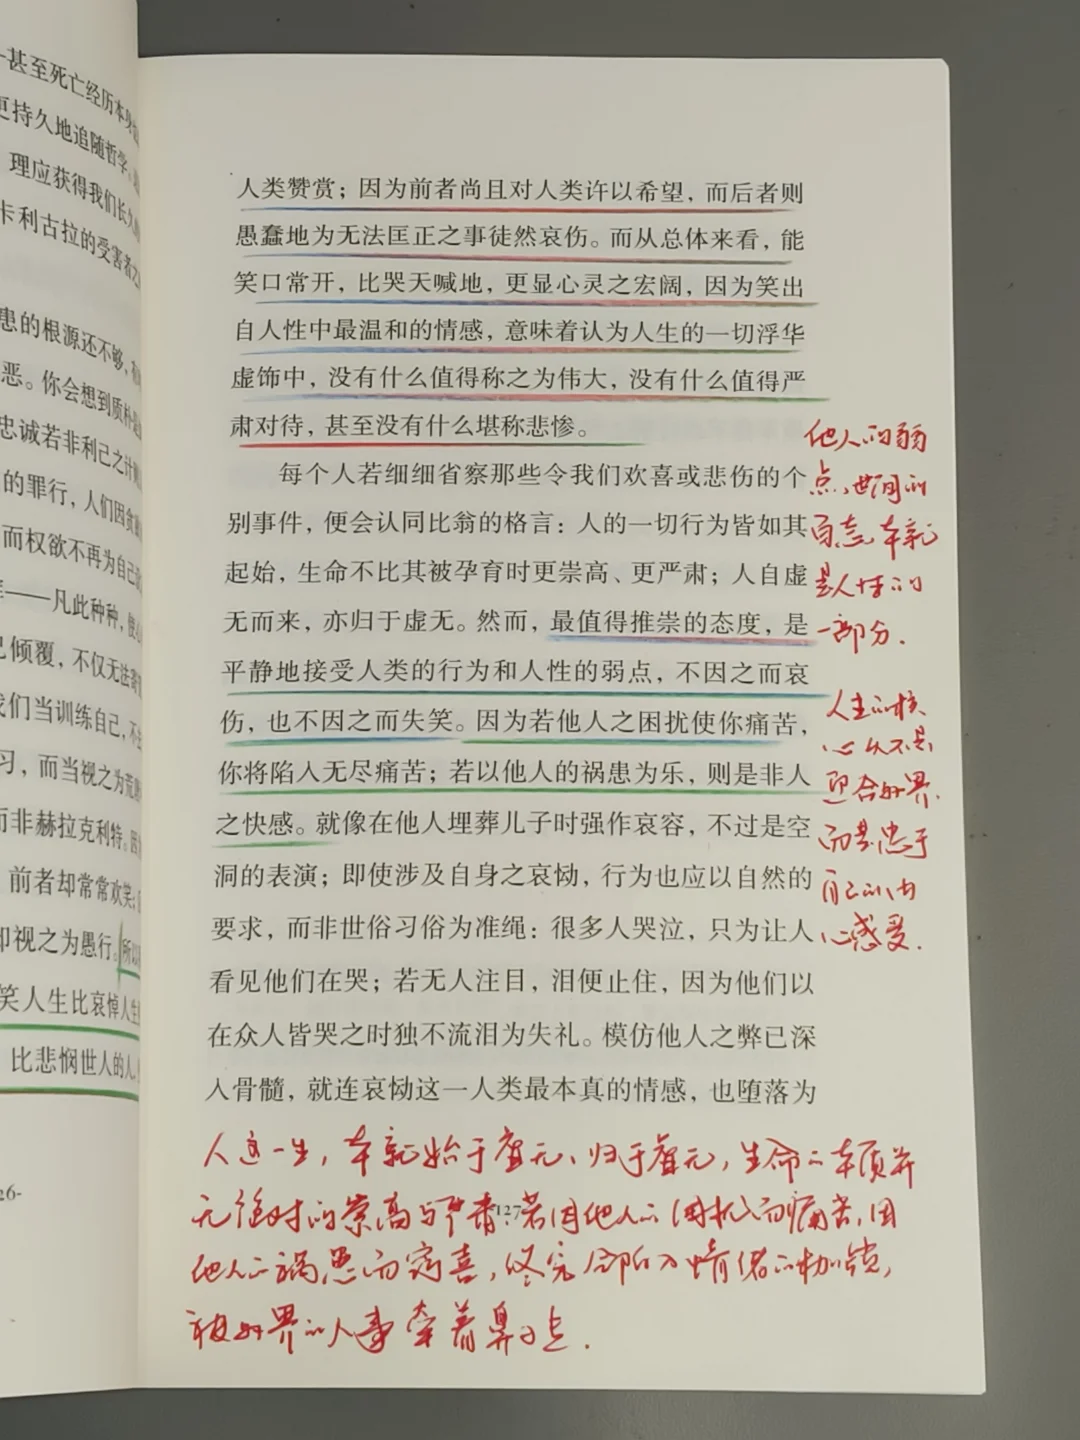 一甚至死亡经历本身
更持久地追随哲学。
理应获得我们长久的
卡利古拉的受害者之
患的根源还不够,
恶。你会想到质朴是
忠诚若非利己之计
的罪行,人们因贪
而权欲不再为自己
——凡此种种,
已倾覆,不仅无法
我们当训练自己,不
习,而当视之为荒
而非赫拉克利特。因
前者却常常欢笑;
即视之为愚行。所以
笑人生比哀悼人生
比悲悯世人的人
26-
人类赞赏;因为前者尚且对人类许以希望,而后者则
愚蠢地为无法匡正之事徒然哀伤。而从总体来看,能
笑口常开,比哭天喊地,更显心灵之宏阔,因为笑出
自人性中最温和的情感,意味着认为人生的一切浮华
虚饰中,没有什么值得称之为伟大,没有什么值得严
肃对待,甚至没有什么堪称悲惨。
每个人若细细省察那些令我们欢喜或悲伤的个
别事件,便会认同比翁的格言:人的一切行为皆如其
起始,生命不比其被孕育时更崇高、更严肃;人自虚
无而来,亦归于虚无。然而,最值得推崇的态度,是
平静地接受人类的行为和人性的弱点,不因之而哀
伤,也不因之而失笑。因为若他人之困扰使你痛苦,
你将陷入无尽痛苦;若以他人的祸患为乐,则是非人
之快感。就像在他人埋葬儿子时强作哀容,不过是空
洞的表演;即使涉及自身之哀恸,行为也应以自然的
要求,而非世俗习俗为准绳:很多人哭泣,只为让人
看见他们在哭;若无人注目,泪便止住,因为他们以
在众人皆哭之时独不流泪为失礼。模仿他人之弊已深
入骨髓,就连哀恸这一人类最本真的情感,也堕落为
他人的弱
点、世间的
百态,本就
是人性的
一部分.
人生的核
心从不是
迎合外界,
而是忠于
自己的内
心感受.
人这一生,本就始于虚无、归于虚无,生命的本质并
无绝对的崇高与严肃.若因他人的困扰而痛苦,因
他人的祸患而窃喜,终究会陷入情绪的枷锁,
被外界的人事牵着鼻子走.
127